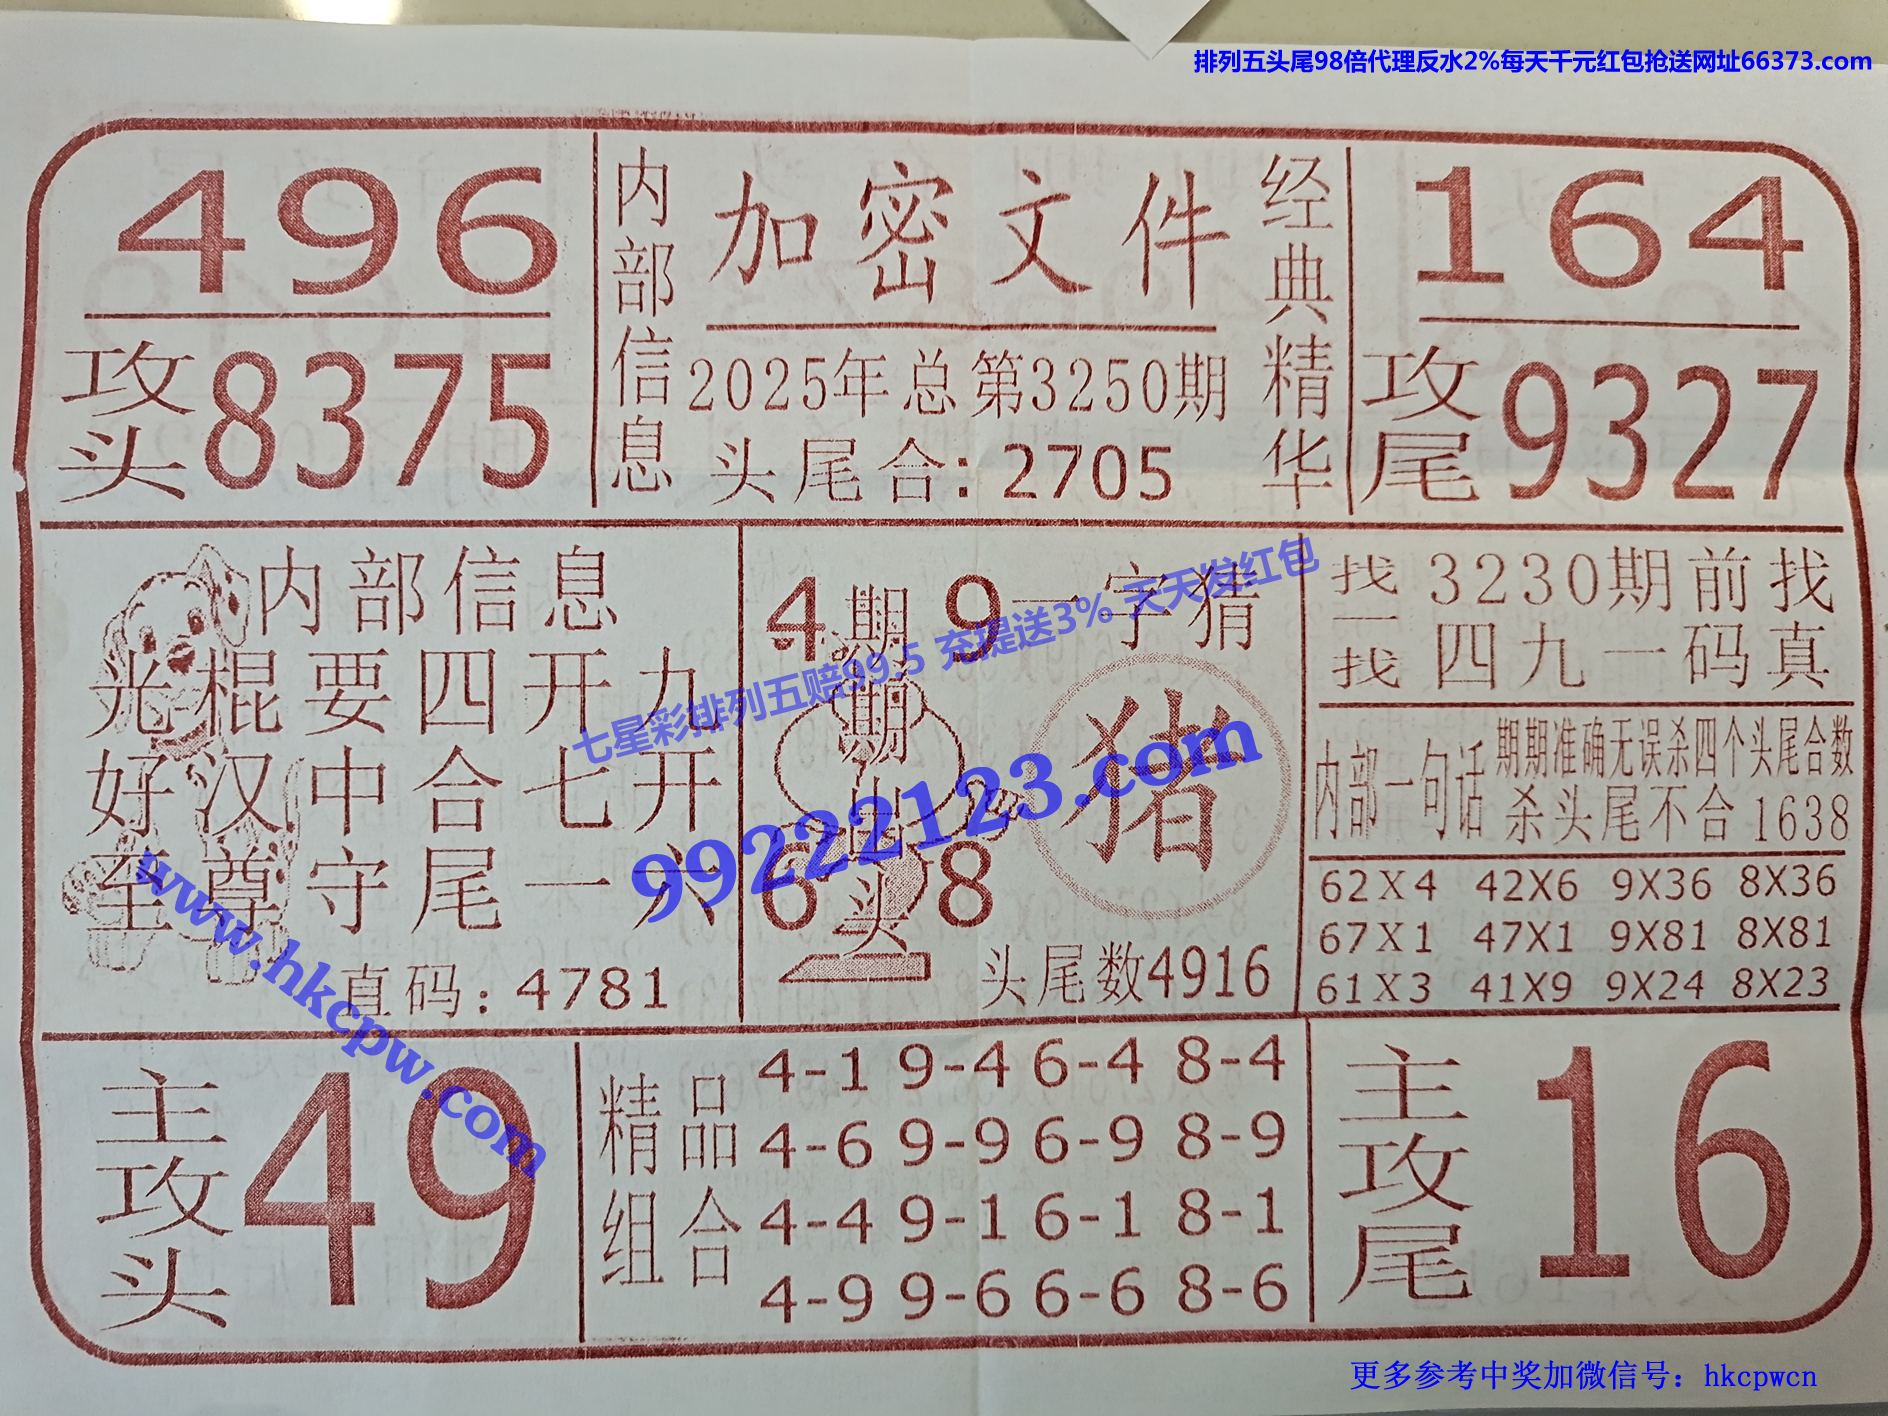 排列五头尾98倍代理反水2%每天千元红包抢送网址66373.com
496
攻头8375
内部信息
加密文件
2025年总第3250期
头尾合:2705
经典精华
164
攻尾9327
内部信息
光棍要四开九
好汉中合七开
至尊守尾一六
直码:4781
4 9
期期出头
6 8
一字猜
猪
头尾数4916
找一找
3230期前找
四九一码真
内部一句话
期期准确无误杀四个头尾合数
杀头尾不合1638
62X4 42X6 9X36 8X36
67X1 47X1 9X81 8X81
61X3 41X9 9X24 8X23
主攻头
49
精品组合
4-1 9-4 6-4 8-4
4-6 9-9 6-9 8-9
4-4 9-1 6-1 8-1
4-9 9-6 6-6 8-6
主攻尾
16
七星彩排列五赔99.5 充提送3% 天天发红包
99222123.com
www.hkcpw.com
更多参考中奖加微信号：hkcpwcn